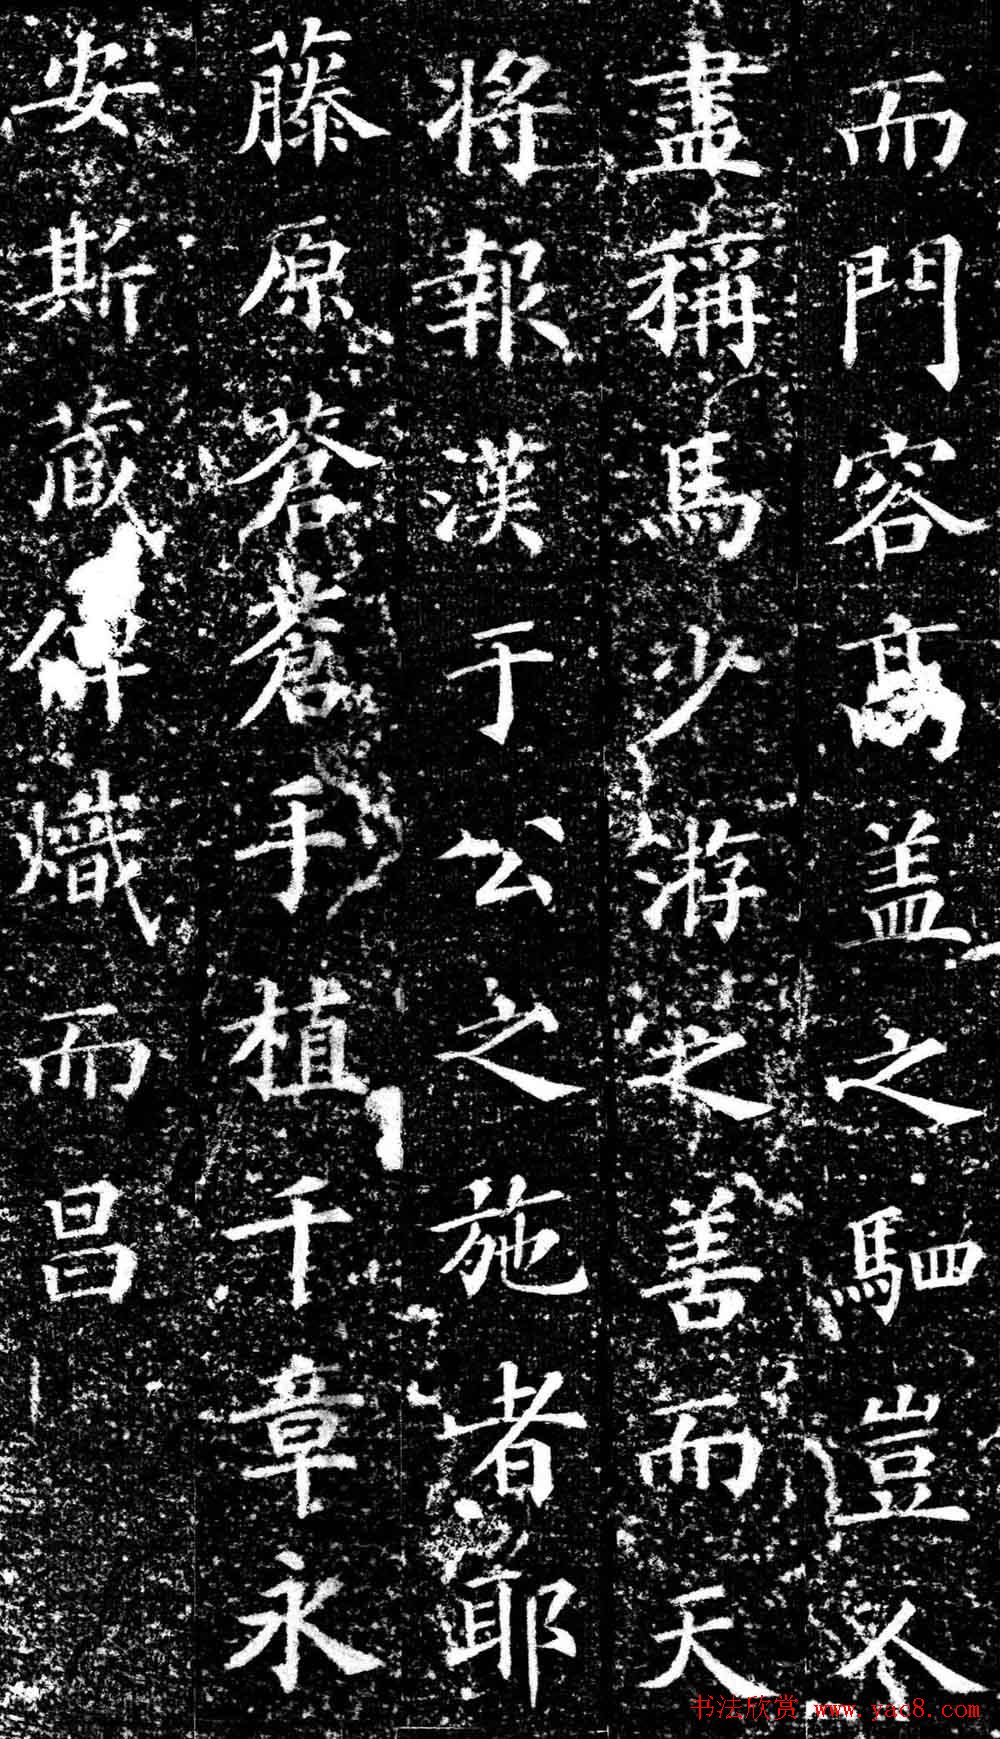 而門容髙盖之駟豈不
盡稱馬少游之善而天
將報漢于公之施者耶
藤原蒼蒼手植千章永
安斯藏俾熾而昌
书法欣赏 www.yac8.com